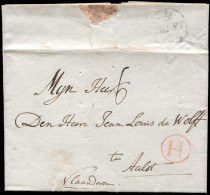 Myn Heer
Den Heer Jean Louis de Wolff
te
Aalst
Vlaanderen
H